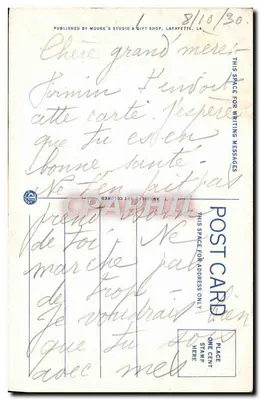 8/10/30.
PUBLISHED BY MOORE'S STUDIO & GIFT SHOP, LAFAYETTE, LA.
Chère grand'mère:-
Firmin t'envoit
cette carte. J'espère
que tu es en
bonne santé.
Ne t'en fait pas
prend soin
de toi. Ne
marche pas
de trop.
Je voudrais bien
que tu sois
avec mes
THIS SPACE FOR WRITING MESSAGES
POST CARD
THIS SPACE FOR ADDRESS ONLY
PLACE
ONE CENT
STAMP
HERE